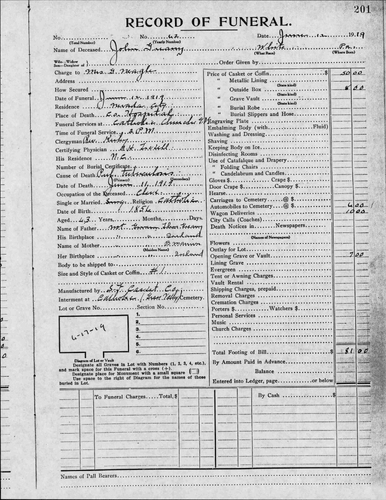 201
RECORD OF FUNERAL.
No. 62 Date June 12 1919
(Total Number) (Yearly Number)
Name of Deceased John
Charge to Mrs. Order Given by
How Secured
Price of Casket or Coffin 50 00
" Metallic Lining
" Outside Box 8 00
" Grave Vault
" Burial Robe
" Burial Slippers and Hose
Date of Funeral June 12 1919
Residence Nevada City
Place of Death Co. Hospital
Funeral Services at Catholic Church
Time of Funeral Service 2 P.M.
Clergyman Rev.
Certifying Physician
His Residence N.C.
Number of Burial Certificate
Cause of Death Pul. Tuberculosis
Date of Death June 11, 1919
Occupation of the Deceased Clerk
Single or Married Sing. Religion Catholic
Date of Birth
Aged 63 Years Months Days
Name of Father
His Birthplace Ireland
Name of Mother
(Maiden Name)
Her Birthplace Ireland
Body to be shipped to
Size and Style of Casket or Coffin #1
Manufactured by Co.
Interment at Catholic Cemetery
Lot or Grave No. Section No.
Engraving Plate
Embalming Body (with Fluid)
Washing and Dressing
Shaving
Keeping Body on Ice
Disinfecting Rooms
Use of Catafalque and Drapery
" Folding Chairs
" Candelabrum and Candles
Gloves $ Crape $
Door Crape $ Canopy $
Hearse
Carriages to Cemetery @ $
Automobiles to Cemetery @ $ 6 00
Wagon Deliveries 10 00
City Calls (Coaches)
Death Notices
(Names of Newspapers)
Flowers
Outlay for Lot
Opening Grave or Vault 7 00
Lining Grave
Evergreen
Tent or Awning Charges
Vault Rental
Shipping Charges, prepaid
Removal Charges
Cremation Charges
Porters $ Watchers $
Personal Services
Music
Church Charges
Total Footing of Bill $ 81 00
By Amount Paid in Advance
Balance
Entered into Ledger, page or below
6-17-19
1
2
3
4
5
6
Diagram of Lot or Vault
Designate all Graves in Lot with Numbers (1, 2, 3, 4, etc.),
and mark space for this Funeral with a cross (+).
Designate place for Monument with a small square
Use space to the right of Diagram for the names of those
Buried in Lot.
To Funeral Charges $ By Cash $
Names of Pall Bearers